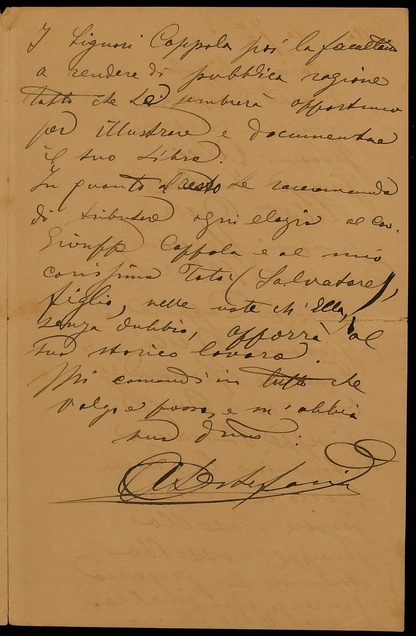 I Signori Coppola poi la facoltano
a rendere di pubblica ragione
tutto che Le sembrerà opportuno
per illustrare e documentare
il suo libro.
In quanto al resto Le raccomando
di tributare ogni elogio al Cav.
Giuseppe Coppola e al mio
carissimo Totò (Salvatore)
figlio, nelle note ch'Ella,
senza dubbio, apporrà al
suo storico lavoro.
Mi comandi in tutto che
valgo e posso, e m'abbia